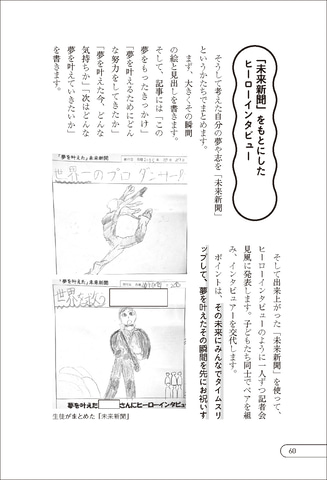 「未来新聞」をもとにした
ヒーローインタビュー
そうして考えた自分の夢や志を「未来新聞」
というかたちでまとめます。
まず、大きくその瞬間
の絵と見出しを書きます。
そして、記事には「この
夢をもったきっかけ」
「夢を叶えるためにどん
な努力をしてきたか」
「夢を叶えた今、どんな
気持ちか」「次はどんな
夢を叶えていきたいか」
を書きます。
「夢を叶えた」未来新聞
世界一のプロ ダンサーに
「夢を叶えた」未来新聞
世界を救
夢を叶えた
さんにヒーローインタビュ
生徒がまとめた「未来新聞」
そして出来上がった「未来新聞」を使って、
ヒーローインタビューのように一人ずつ記者会
見風に発表します。子どもたち同士でペアを組
み、インタビュアーを交代します。
ポイントは、その未来にみんなでタイムスリ
ップして、夢を叶えたその瞬間を先にお祝いす
60